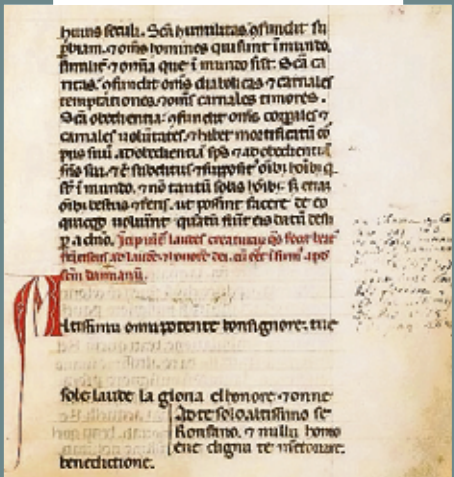 huius seculi. Scā humilitas ꝯfundit su
ꝑbiam. ⁊ oms̄ homines qui sunt ī mundo.
similit̄ ⁊ omīa que ī mundo sūt. Scā ca
ritas. ꝯfundit oms̄ diabolicas ⁊ carnales
temptationes. ⁊ oms̄ carnales timores.
Scā obedientia: ꝯfundit oms̄ corꝑales ⁊
carnales uolūtates. ⁊ habet mortificatū cor
pus suū. ad obedientiā sp̄s ⁊ ad obedientiā
fr̄is sui. ⁊ ē subditus ⁊ suppositꝰ oībꝰ hoībꝰ q̄
st̄ ī mundo. ⁊ nō tantū solis hoībꝰ. sꝫ etiā
oībꝰ bestiis ⁊ feris. ut possint facere de eo
quicqd uoluīnt quātū fuīt eis datū desu
ꝑ a dn̄o. Incipiūt laudes creaturaꝝ qs̄ fecit beats
frāciscus ad laudē ⁊ honorē dei. cū eēt īfirmꝰ apd
scm̄ damianū.
Altissimu omnipotente bonsignore. tue
sole laude la gloria elhonore ⁊ onne
Ad te solo altissimo se
konfano. ⁊ nullu homo
ene dignu te mentouare.
benedictione.